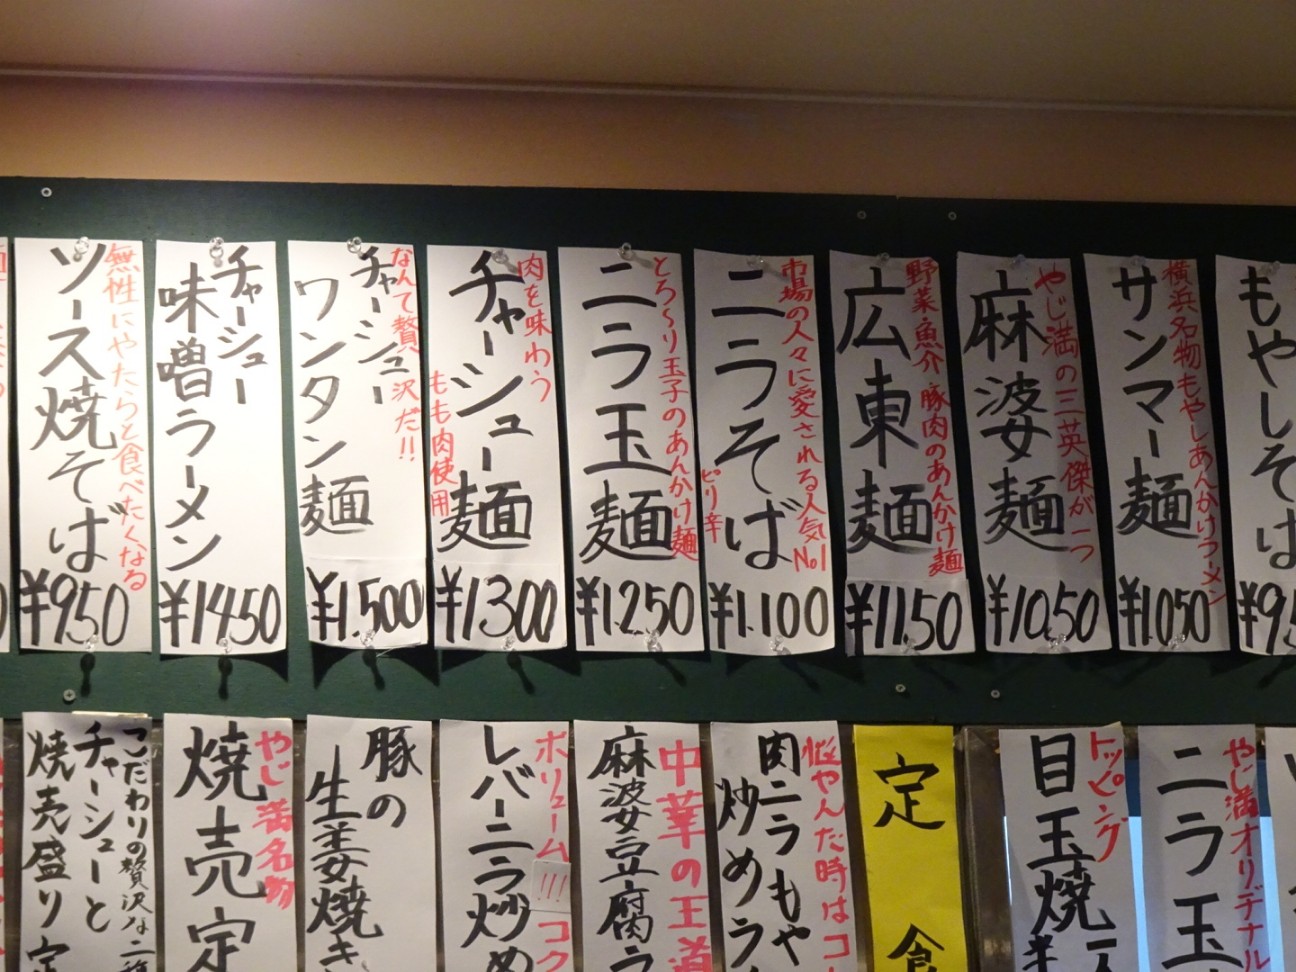 もやしそば
¥95
横浜名物もやしあんかけラーメン
サンマー麺
¥1050
やじ満の三英傑が一つ
麻婆麺
¥1050
野菜・魚介・豚肉のあんかけ麺
広東麺
¥1150
市場の人々に愛される人気No1
ニラそば
ピリ辛
¥1.100
とろ〜り玉子のあんかけ麺
ニラ玉麺
¥1250
肉を味わう
チャーシュー麺
もも肉使用
¥1300
なんて贅沢だ!!
チャーシュー
ワンタン麺
¥1,500
チャーシュー
味噌ラーメン
¥1450
無性にやたらと食べたくなる
ソース焼そば
¥950
やじ満オリヂナル
ニラ玉
トッピング
目玉焼
定食
悩やんだ時はコ
肉ニラもや
炒めラ
中華の王道
麻婆豆腐
ボリューム
コク
!!!
レバーニラ炒め
豚の
生姜焼き
やじ満名物
焼売定
こだわりの贅沢な二種
チャーシューと
焼売盛り定